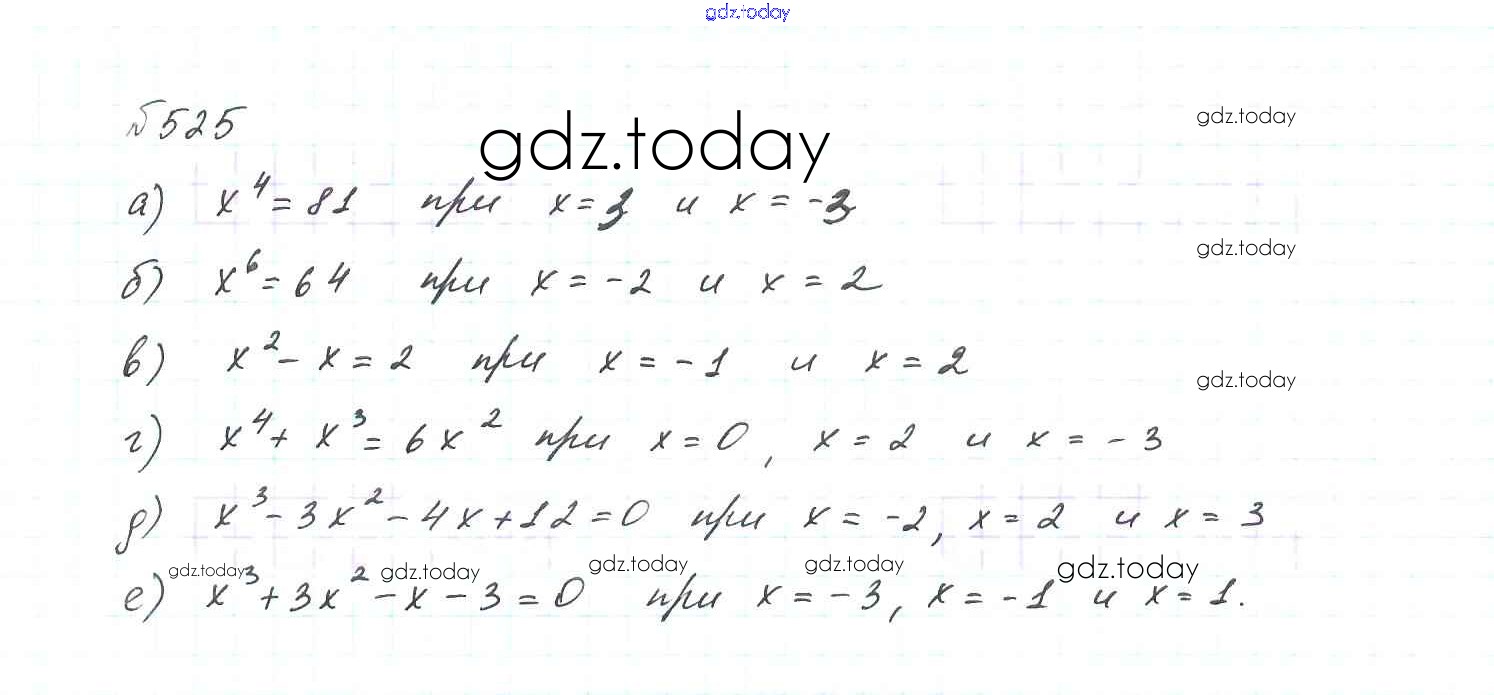 gdz.today
№525
gdz.today
gdz.today
а) x⁴ = 81 при x = 3 и x = -3
gdz.today
б) x⁶ = 64 при x = -2 и x = 2
в) x² - x = 2 при x = -1 и x = 2
gdz.today
г) x⁴ + x³ = 6x² при x = 0, x = 2 и x = -3
д) x³ - 3x² - 4x + 12 = 0 при x = -2, x = 2 и x = 3
gdz.today gdz.today gdz.today gdz.today gdz.today
е) x³ + 3x² - x - 3 = 0 при x = -3, x = -1 и x = 1.